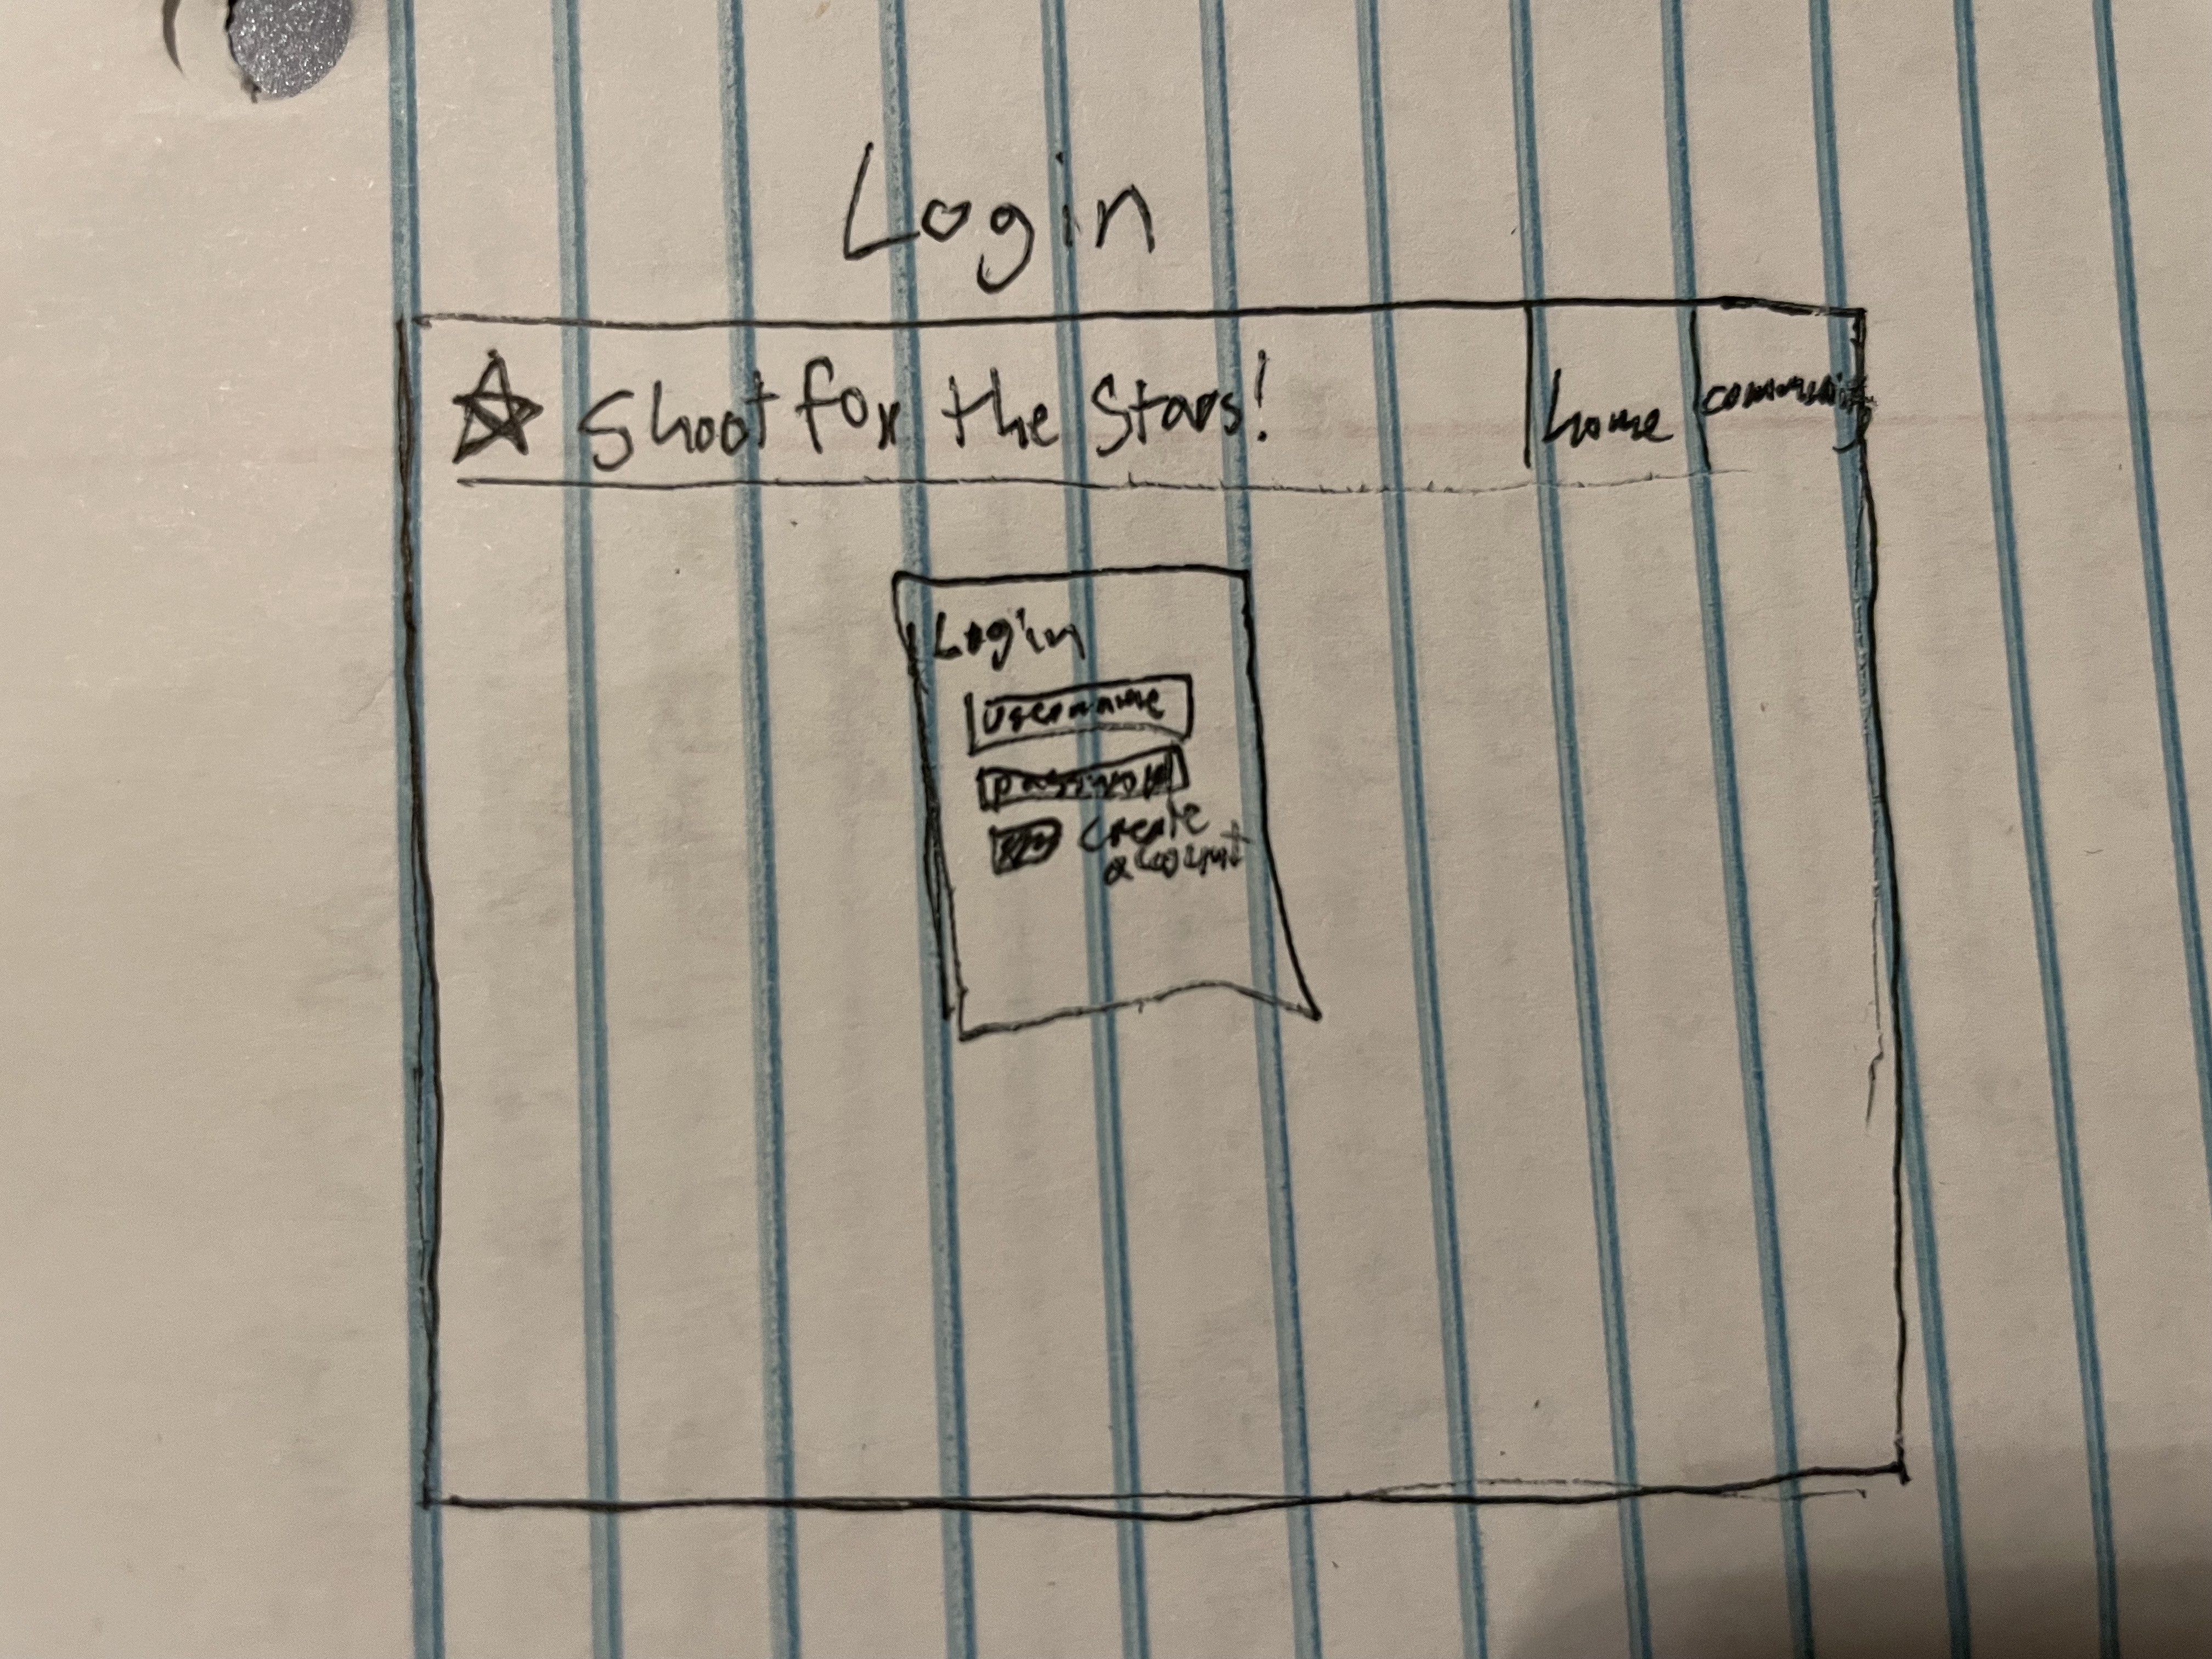 Login
Shoot for the Stars!
home
community
Login
username
password
create
account